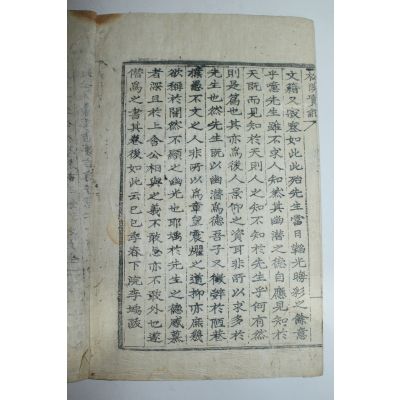 文籍又寂寥如此此殆先生當日韜光晦彩之餘意
乎噫先生雖不求人知然其幽潛之德自應見知於
天旣而見知於天則人之知不知於先生乎何有然
則是篇也其亦爲後人景仰之資耳非所以求多於
先生也然先生旣以幽潛爲德吾子又徵辭於陋巷
樵愚不文之人非所以爲章皇震耀之道抑亦庶幾
欲稱於闇然不顯之幽光也耶 於先生之德感慕
者深且於上舍公相與之義不敢忽亦不敢外也遂
僭爲之書其卷後如此云己巳季春下浣李 跋